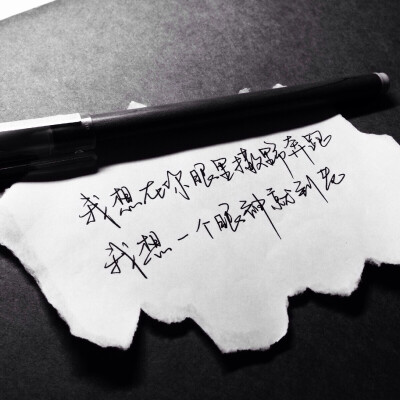 我想在你眼里撒野奔跑
我想一个眼神就到老